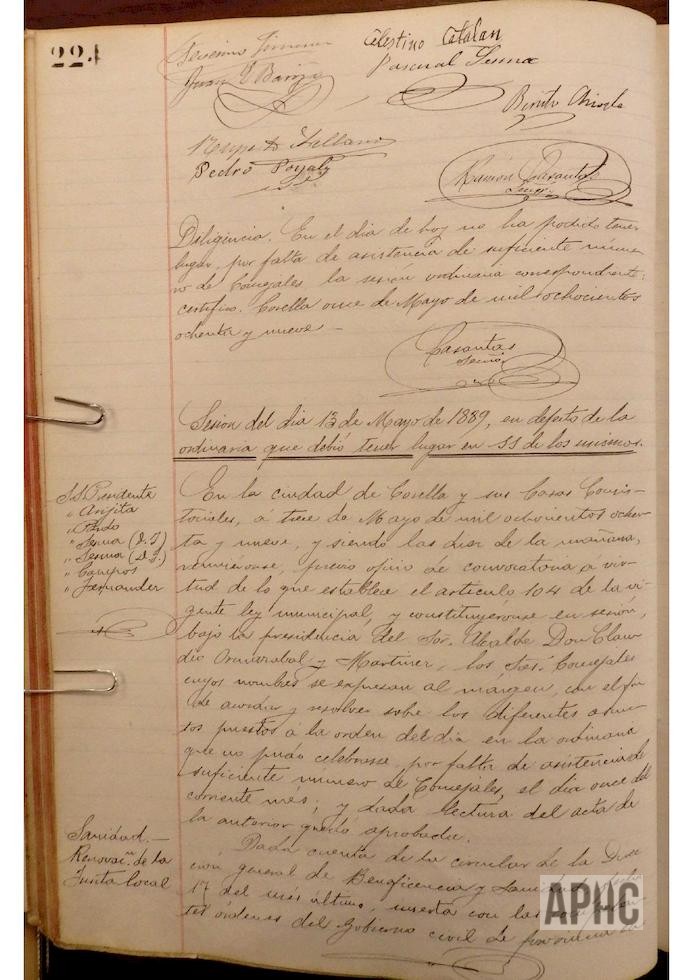 224
Severino Jimenez
Celestino Catalan
Juan
Pascual Sesma
Benito
Pedro
Ramón Casantos
Secrio
Diligencia. En el dia de hoy no ha podido tener
lugar, por falta de asistencia de suficiente núme-
ro de Concejales, la sesión ordinaria correspondiente;
certifico. Corella once de Mayo de mil ochocientos
ochenta y nueve —
Casantos
Secrio
Sesion del dia 13 de Mayo de 1889, en defecto de la
ordinaria que debió tener lugar en 11 de los mismos.
S.S. Presidente
" Arijita
" Sesma (D. J)
" Sesma (D. P.)
" Campos
" Fernandez
En la ciudad de Corella y sus Casas Consis-
toriales, á trece de Mayo de mil ochocientos ochen-
ta y nueve, y siendo las diez de la mañana,
reuniéronse, previo oficio de convocatoria a vir-
tud de lo que establece el artículo 104 de la vi-
gente ley municipal, y constituyéronse en sesión,
bajo la presidencia del Sor. Alcalde Don Clau-
dio y Martinez, los Sres. Concejales
cuyos nombres se expresan al margen, con el fin
de acordar y resolver sobre los diferentes asun-
tos puestos á la orden del dia en la ordinaria
que no pudo celebrarse, por falta de asistencia de
suficiente numero de Concejales, el dia once del
corriente més; y dada lectura del acta de
la anterior quedó aprobada.
Sanidad.—
Renovaón. de la
Junta local
Dada cuenta de la circular de la Direc
ción general de Beneficencia y Sanidad, fecha
17 del més último, inserta con las
tes órdenes del Gobierno civil de provincia
APHC